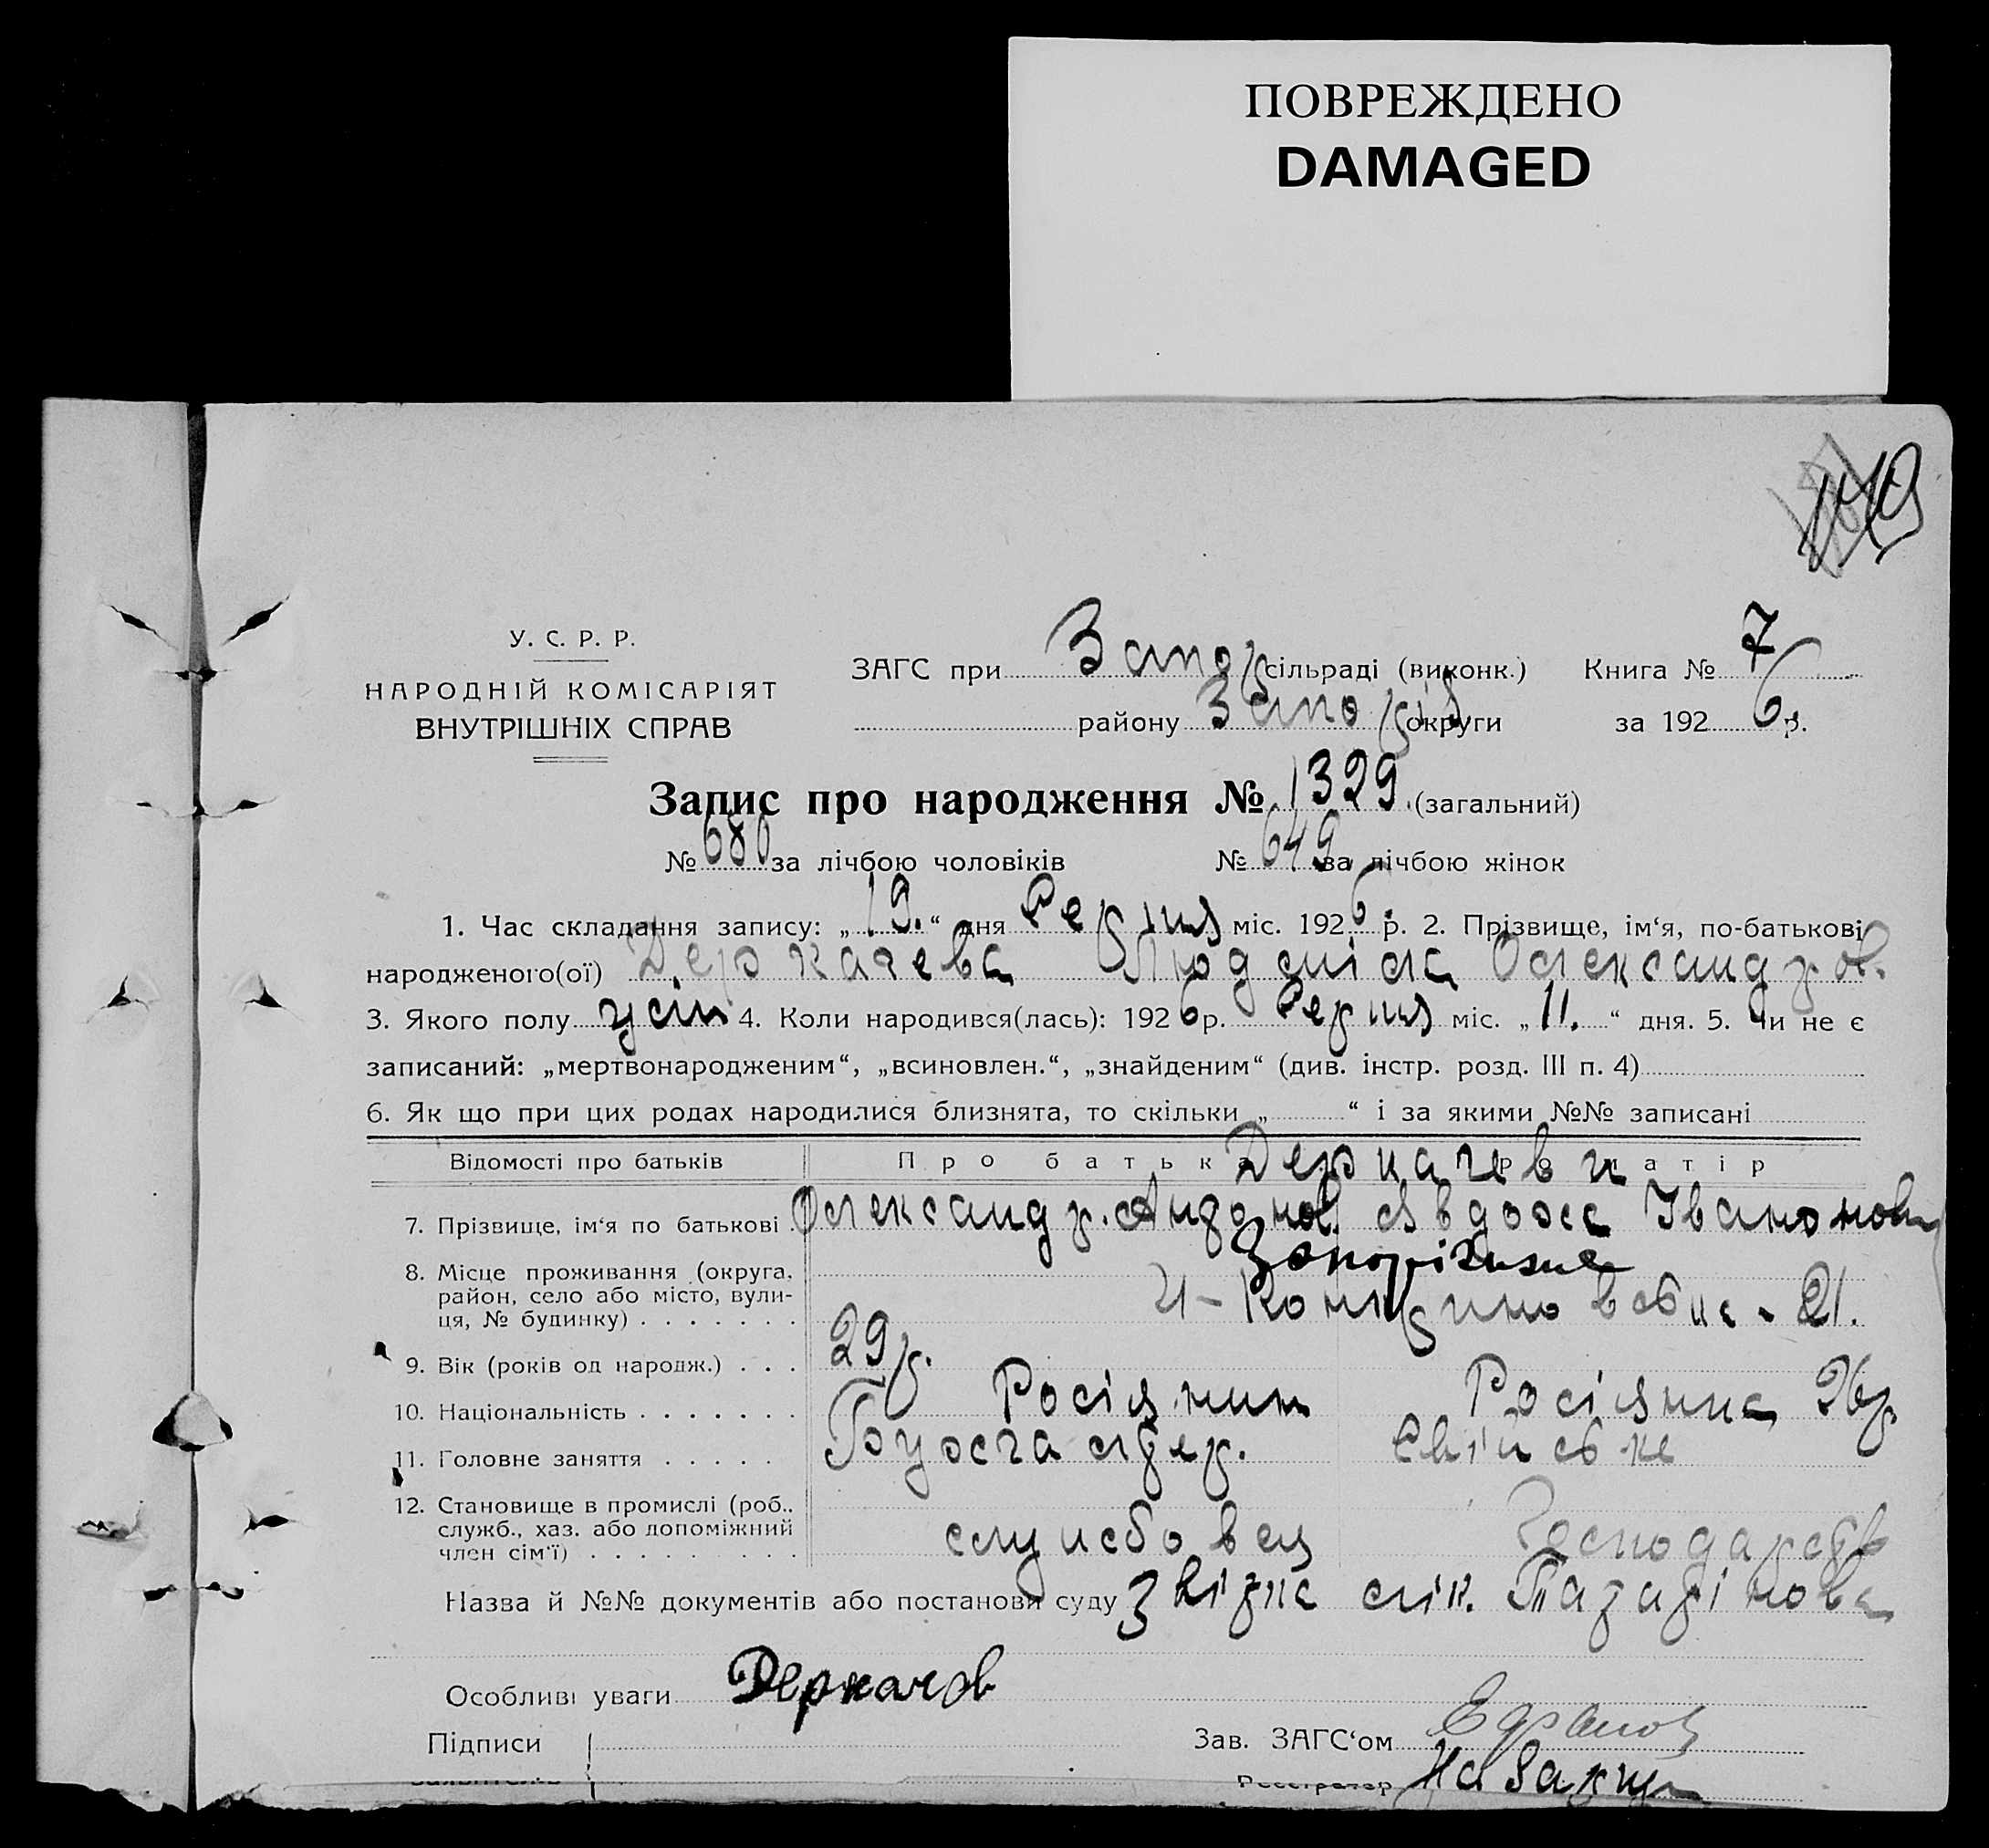 ПОВРЕЖДЕНО
DAMAGED
У. С. Р. Р.
НАРОДНІЙ КОМІСАРІЯТ
ВНУТРІШНІХ СПРАВ
ЗАГС при Запор сільраді (виконк.) Книга № 7
району Запоріз округи за 1926 р.
Запис про народження № 1329 (загальний)
№ 680 за лічбою чоловіків № 649 за лічбою жінок
1. Час складання запису: „19.“ дня Серпня міс. 1926 р. 2. Прізвище, ім‘я, по-батькові
народженого(ої) Деркачева Людміла Олександров.
3. Якого полу жін 4. Коли народився(лась): 1926 р. Серпня міс. „11.“ дня. 5. Чи не є
записаний: „мертвонародженим“, „всиновлен.“, „знайденим“ (див. інстр. розд. III п. 4)
6. Як що при цих родах народилися близнята, то скільки „ “ і за якими №№ записані
Відомості про батьків Про батька Деркачеви матір
7. Прізвище, ім‘я по батькові Олександр. Антонов. Явдоха
Запоріжжя
8. Місце проживання (округа, район, село або місто, вулиця, № будинку) 21.
9. Вік (років од народж.) 29 р.
10. Національність Росіянин Росіянка 26 р.
11. Головне заняття Бухгалтер. Свійське
12. Становище в промислі (роб., служб., хаз. або допоміжний член сім‘ї) службовец Господарств
Назва й №№ документів або постанови суду лік.
Особливі уваги Деркачов
Підписи Зав. ЗАГС‘ом
Реєстратор